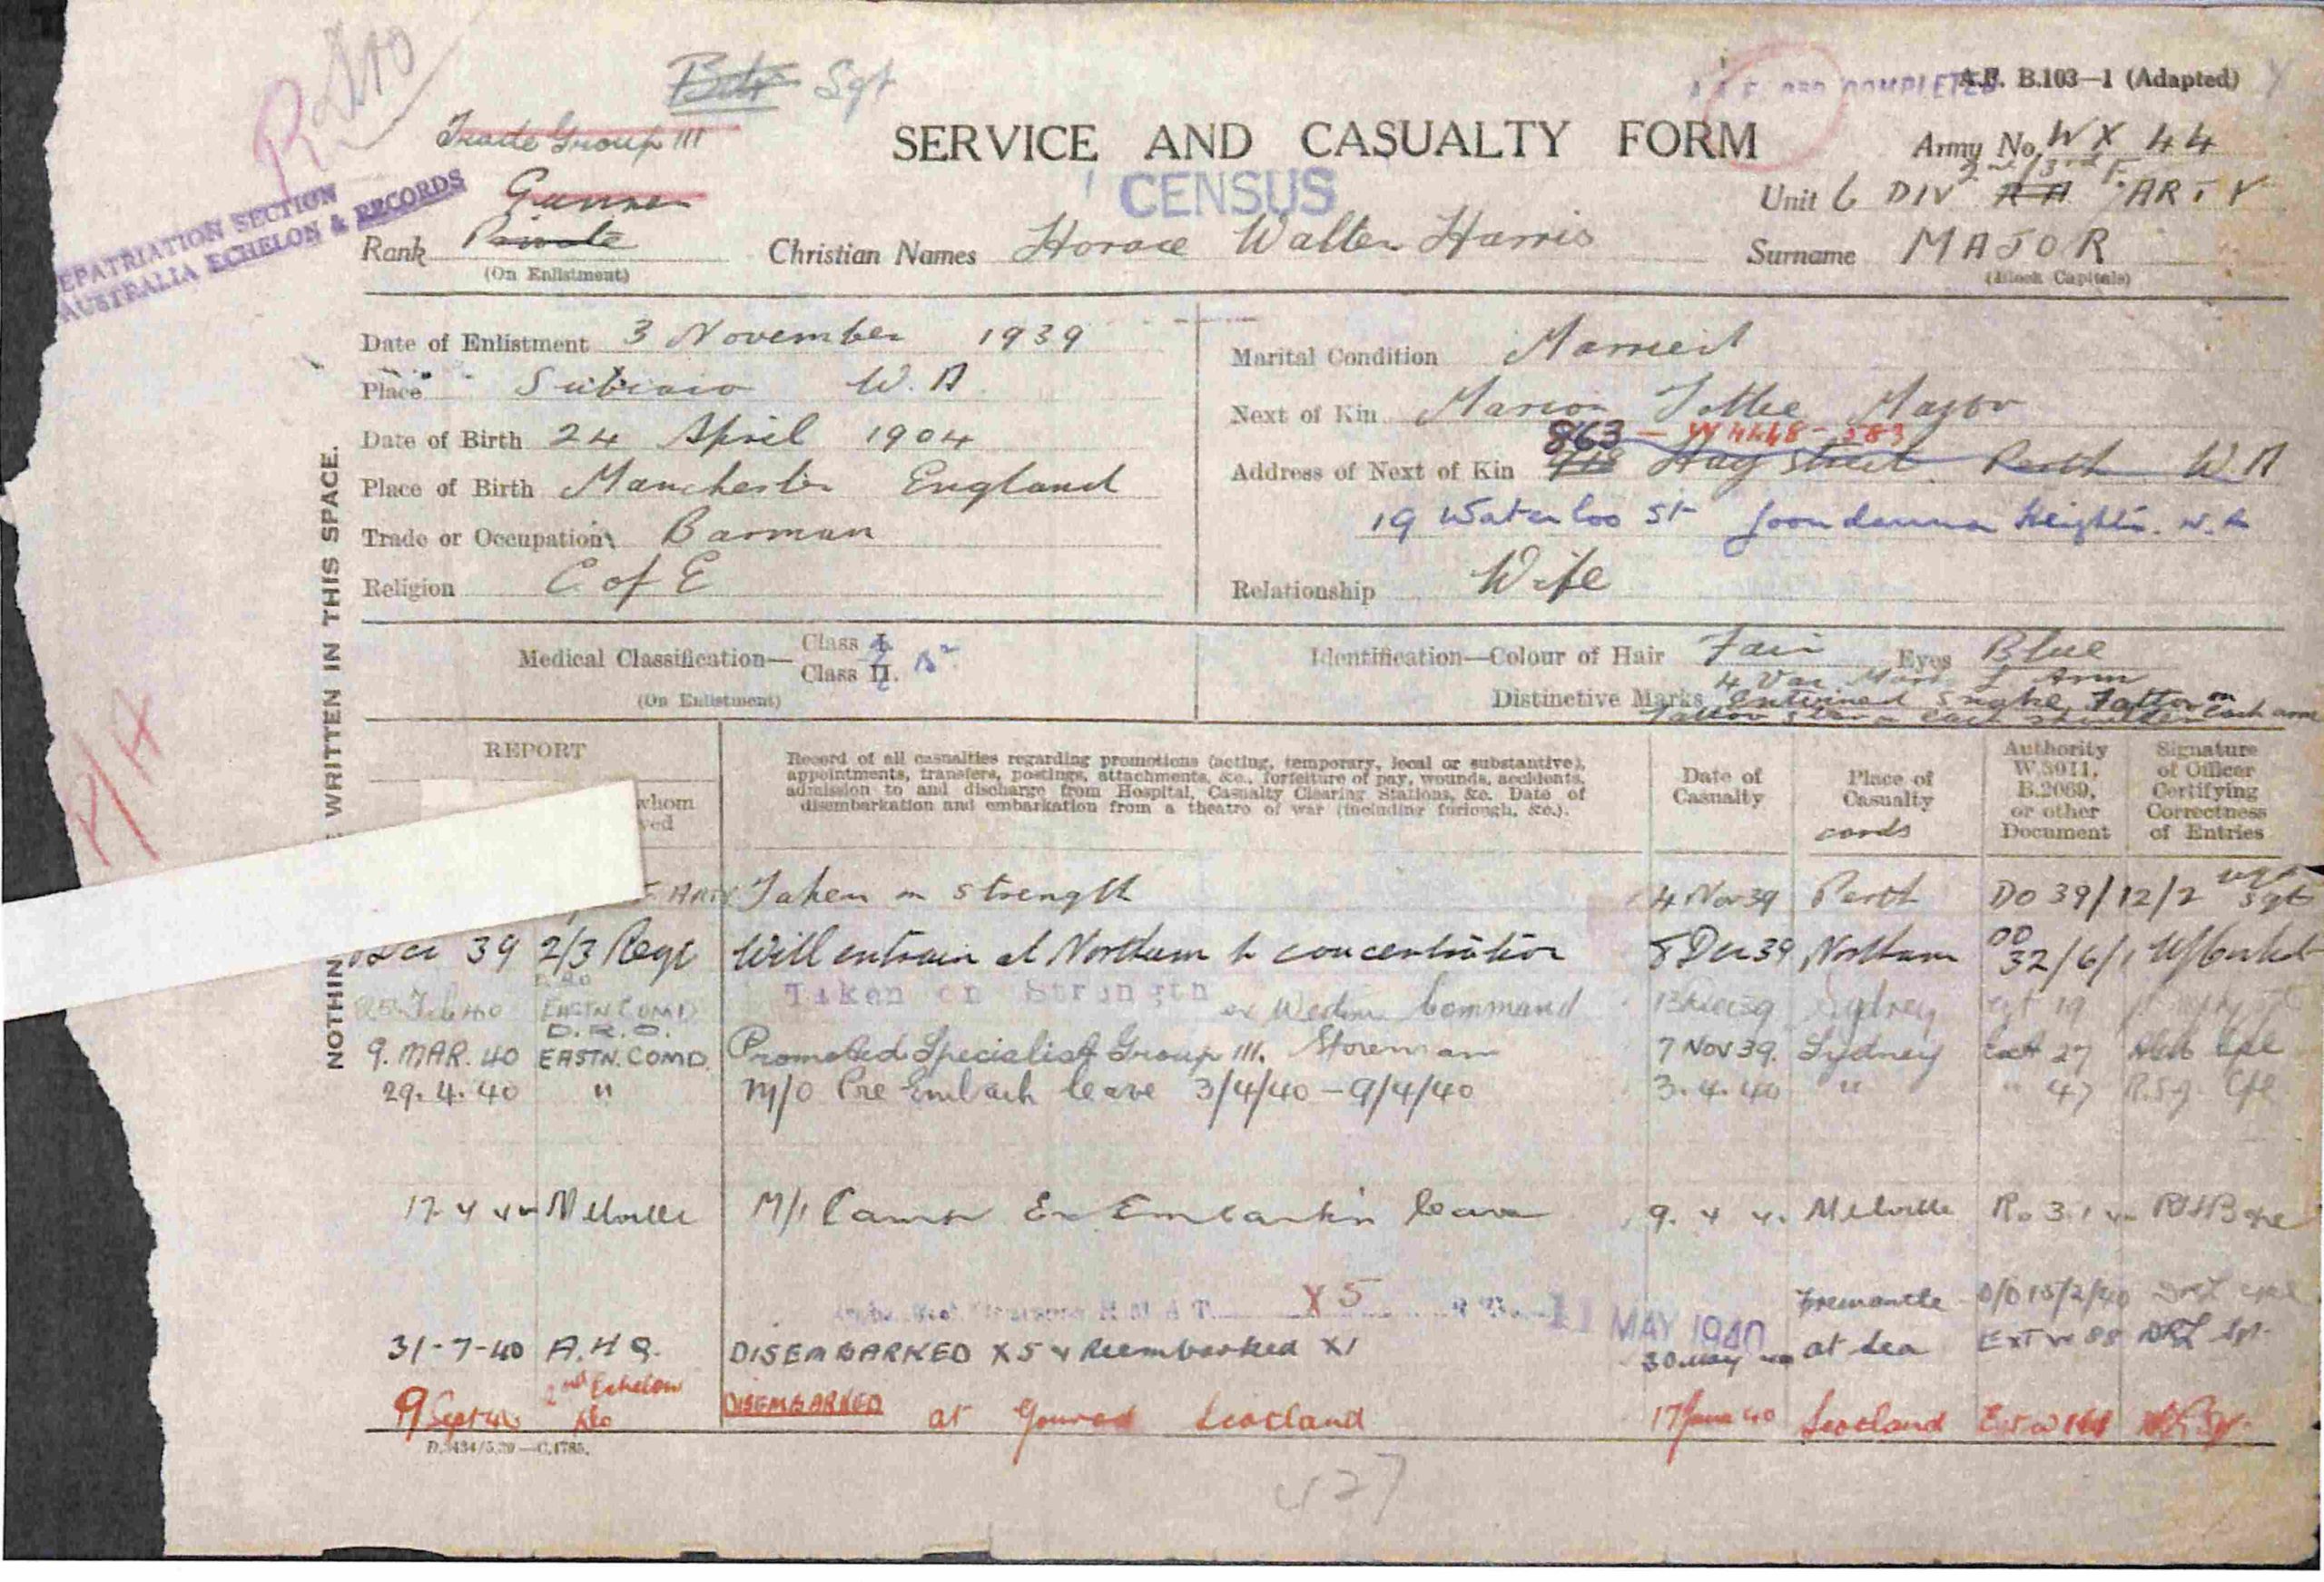 Sgt
A.F. B.103—1 (Adapted)
Trade Group III
SERVICE AND CASUALTY FORM
Army No. WX 44
CENSUS
Gunner
Unit 6 DIV RA ARTY
REPATRIATION SECTION
AUSTRALIA ECHELON & RECORDS
Rank Private
(On Enlistment)
Christian Names Horace Walter Harris
Surname MAJOR
(Block Capitals)
Date of Enlistment 3 November 1939
Place Subiaco W.A
Date of Birth 24 April 1904
Place of Birth Manchester England
Trade or Occupation Barman
Religion C of E
Marital Condition Married
Next of Kin Marion Major
863
Address of Next of Kin Hay Street Perth W A
19 Waterloo St Joondanna Heights. W.A
Relationship Wife
Medical Classification—
Class I.
Class II.
(On Enlistment)
Identification—Colour of Hair Fair Eyes Blue
4 Vac Marks L Arm
Distinctive Marks Entwined Snake Tattoo on each arm
NOTHING WRITTEN IN THIS SPACE.
REPORT
whom
Record of all casualties regarding promotions (acting, temporary, local or substantive),
appointments, transfers, postings, attachments, &c., forfeiture of pay, wounds, accidents,
admission to and discharge from Hospital, Casualty Clearing Stations, &c. Date of
disembarkation and embarkation from a theatre of war (including furlough, &c.).
Date of
Casualty
Place of
Casualty
cards
Authority
W.3011,
B.2069,
or other
Document
Signature
of Officer
Certifying
Correctness
of Entries
ARTY Taken on strength 4 Nov 39 Perth DO 39/12/2 Sgt
Dec 39 2/3 Regt Will entrain at Northam to concentration 8 Dec 39 Northam DO 32/6/1
Feb 40 EASTN COMD Taken on Strength ex Western Command 13 Dec 39 Sydney 19
D.R.O.
9. MAR. 40 EASTN. COMD. Promoted Specialist Group III. Storeman 7 Nov 39. Sydney 27 Cpl
29. 4. 40 " M/O Pre Embark leave 3/4/40 – 9/4/40 3. 4. 40 " " 47 Cpl
17. 4 40 Melville M/I Camp Ex Embarkn leave 9. 4 4. Melville
X 5 11 MAY 1940 Fremantle
31-7-40 A.H.Q. DISEMBARKED X5 & Reembarked X1 30 May 40 at Sea
9 Sept 40 2nd Echelon DISEMBARKED at Gourock Scotland 17 June 40 Scotland
427